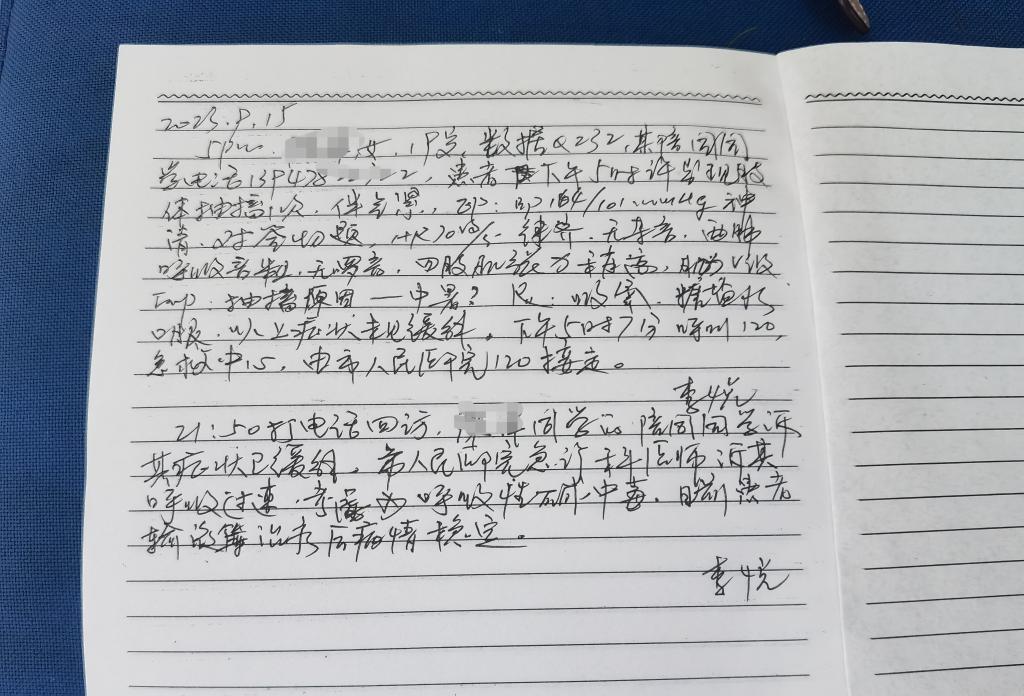 2023.9.15
5pm. 女, 19岁, 数据Q232, 其陪同同
学电话139478 2, 患者下午5时许出现肢
体抽搐1次, 伴气紧, BP: BP 164/101mmHg 神
清, 对答切题, HR70次/分 律齐, 无杂音, 两肺
呼吸音粗, 无啰音, 四肢肌张力 肌力V级
Imp: 抽搐原因——中暑? R: 吸氧,
口服, 以上症状未见缓解, 下午5时7分呼叫120
急救中心, 由市人民医院120接走。
李
21:50打电话回访, 同学的陪同同学诉
其症状已缓解, 市人民医院急诊科医师诉其
呼吸过速, 呼吸性碱中毒, 目前患者
输液等治疗后病情稳定。
李